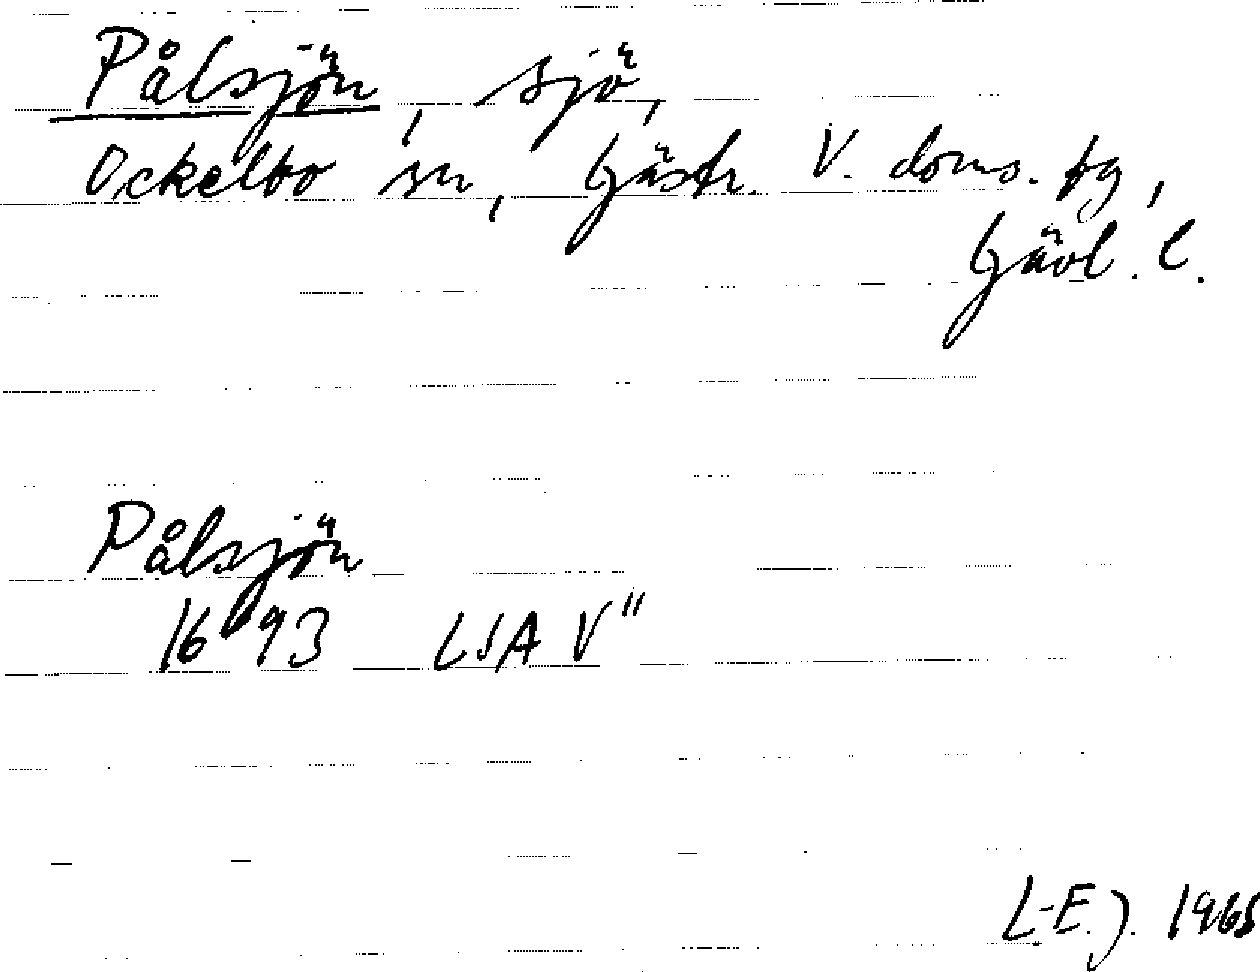 Pålsjön, sjö,
Ockelbo sn, Gästr. V. doms. fg,
Gävl. l.
Pålsjön
1693 LSA V"
L-E.J. 1965